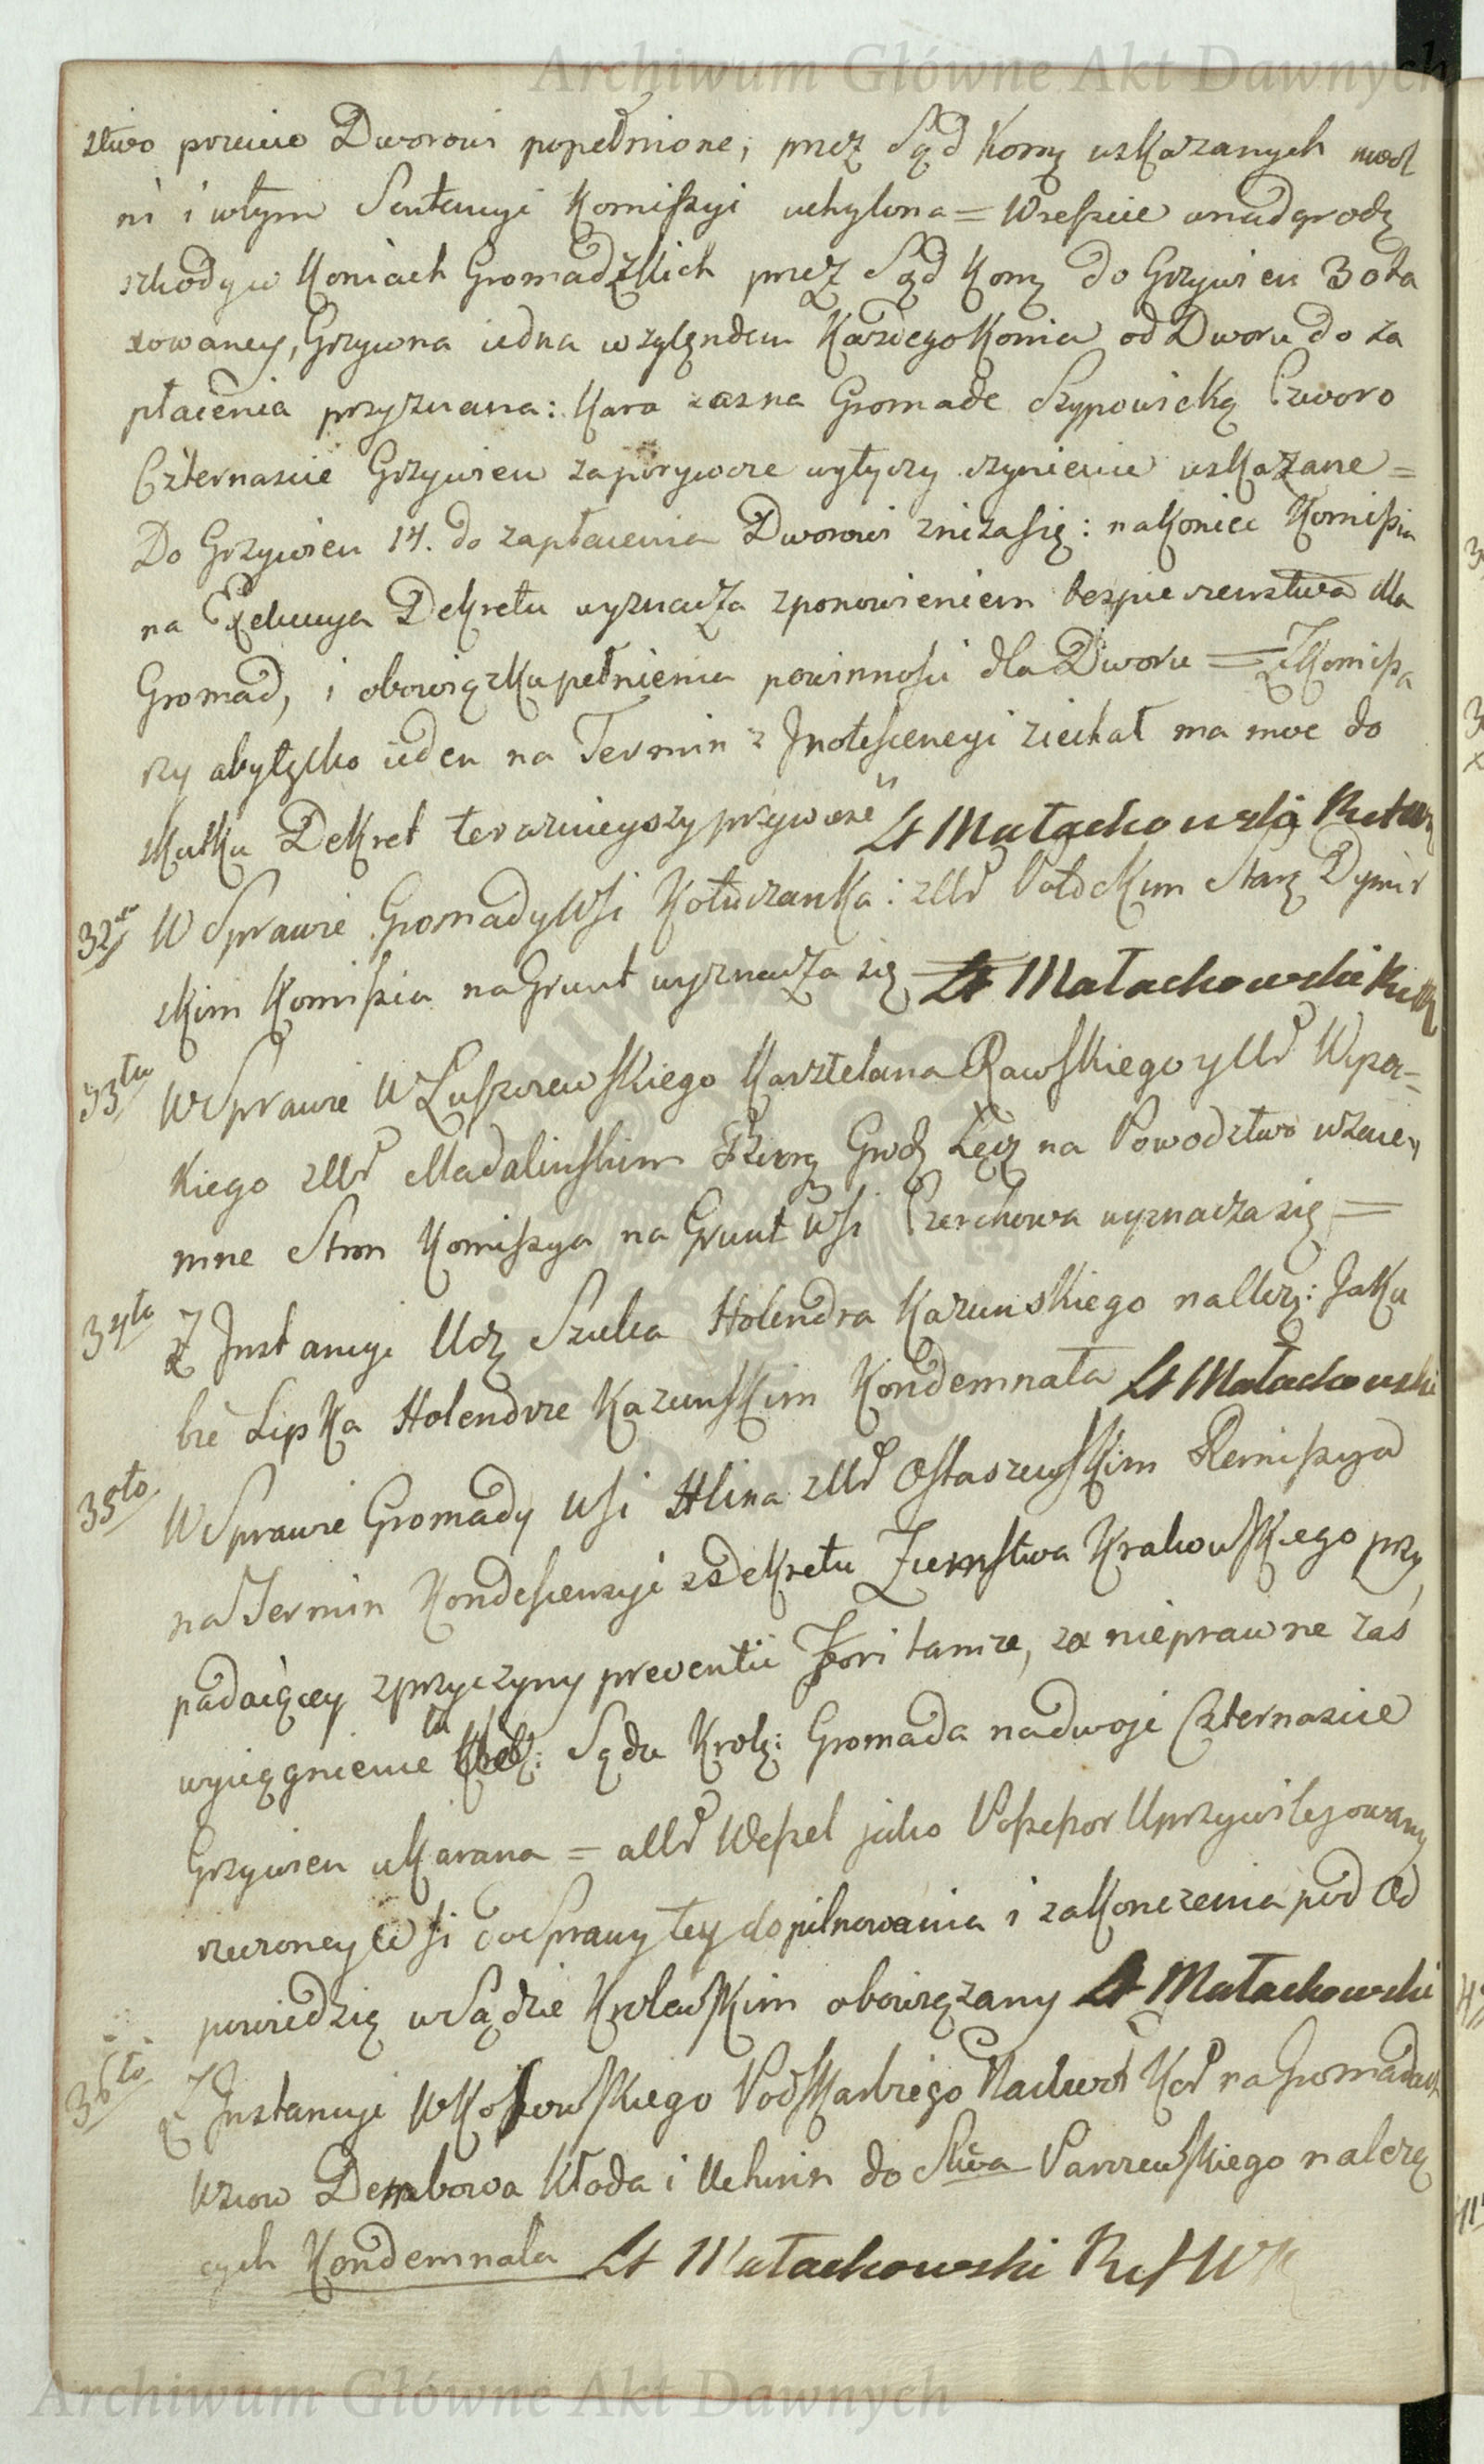 Archiwum Główne Akt Dawnych
stwo przeciwo Dworowi popełnione; przez Sąd Komę wskazanych
ni i wtym Sentencyi Komissyi uchylona = Wreszcie wnadgrodę
szkody w Koniach Gromadzkich przez Sąd Komę do Grzywien 30 ta
xowaney, Grzywna iedna wzglendem Każdego Konia od Dworu do za
płacenia przyznana: Kara zas na Gromadę Szypowicką Czworo
Czternascie Grzywien zaporywcze wytyczy czynienie wskazane =
Do Grzywien 14. do zapłacenia Dworowi zniza się: nakoniec Komissia
na Exekucya Dekretu wyznacza zponowieniem bezpieczenstwa dla
Gromad, i obowiązku pełnienia powinnosci dla Dworu = Z Komissa
rzy aby tylko ieden na Termin z Jnotescencyi ziechał ma moc do
skutku Dekret teraznieyszy przywiesc St Małachowski
32do W Sprawie Gromady Wsi Kołuczanka: z Ur Potockim Starz Dymir
skim Komissia na Grunt wyznacza się St Małachowski
33tio W Sprawie W Luszczewskiego Kasztelana Rawskiego y Ur Wyssec=
kiego z Ur Madalinskim Grodz Łęcz na Powodztwo wzaie
mne Stron Komissya na Grunt Wsi Czerchowa wyznacza się =
34to Z Jnstancyi Ucz Szulca Holendra Kazunskiego na Ucz: Jaku
bie Lipka Holendrze Kazunskim Kondemnata St Małachowski
35to W Sprawie Gromady Wsi Hlina z Ur Ostaszewskim Remissya
na Termin Kondescensyi z dekretu Ziemstwa Krakowskiego przy
padaiącey z przyczyny preventii Fori tamze, za nieprawne zas
wyciągnienie Sądu Krolę: Gromada na dwoje Czternascie
Grzywien ukarana = a Ur Wessel jako Possessor Uprzywilejowany
rzeczoney Wsi do Sprawy tey dopilnowania i zakonczenia pod Od
powiedzią w Sądzie Krolewskim obowiązany St Małachowski
36to Z Jnstancyi W Kossowskiego Podskarbiego Nadwor Kor na Gromadach
Wsiow Dembowa Kłoda i Uchnin do Stwa Parczewskiego należą
cych Kondemnata St Małachowski
Archiwum Główne Akt Dawnych